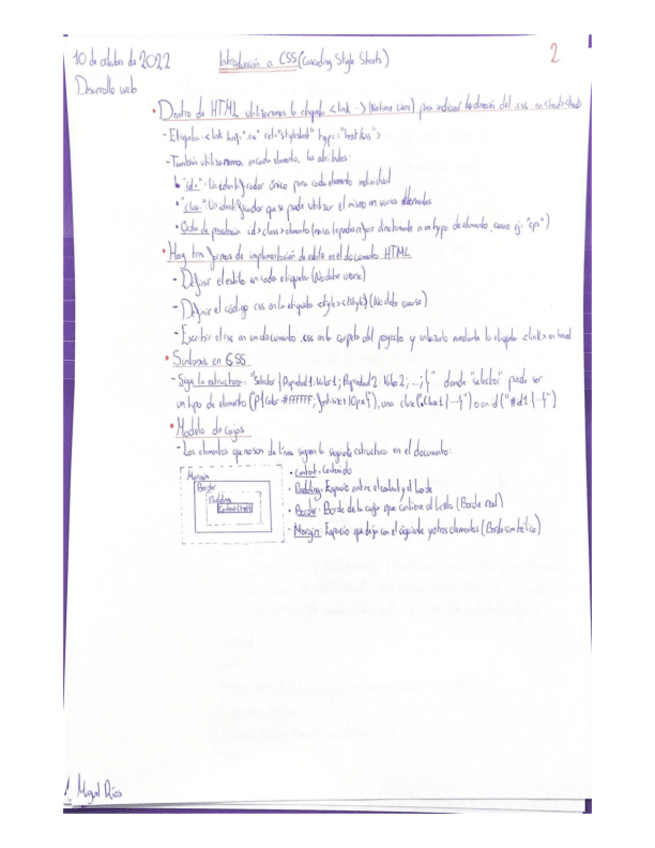 10 de octubre de 2022
Introducción a CSS (Cascading Style Sheets)
2
Desarrollo web
• Dentro de HTML utilizaremos la etiqueta <link -> para indicar la dirección del .css
- Etiqueta: <link href=".css" rel="stylesheet" type="text/css">
- También utilizaremos, en cada elemento, los atributos:
"id=": Un identificador único para cada elemento individual
• "class=": Un identificador que se puede utilizar el mismo en varios elementos
• Orden de id>class>elemento
• Hay tres formas de implementación de estilo en el documento HTML
- Definir el estilo en cada etiqueta (No debe usarse)
- Definir el código css en la etiqueta <style></style> (No debe usarse)
- Escribir el css en un documento .css en la carpeta del proyecto y enlazarlo mediante la etiqueta <link> en head
• Sintaxis en CSS
- Sigue la estructura: "Selector {Propiedad1:Valor1; Propiedad2:Valor2; ...;}" donde "selector" puede ser
un tipo de elemento (P{color:#FFFFFF; 10px}), una clase o un id ("#id1{...}")
• Modelo de cajas
- Los elementos que no son de línea siguen la siguiente estructura en el documento:
Margin
Border
Padding
Content
• Content: Contenido
• Padding: Espacio entre el content y el borde
• Border: Borde de la caja que contiene al texto (Borde real)
• Margin: Espacio que deja con el siguiente y otros elementos (Borde simbólico)
Miguel Ríos